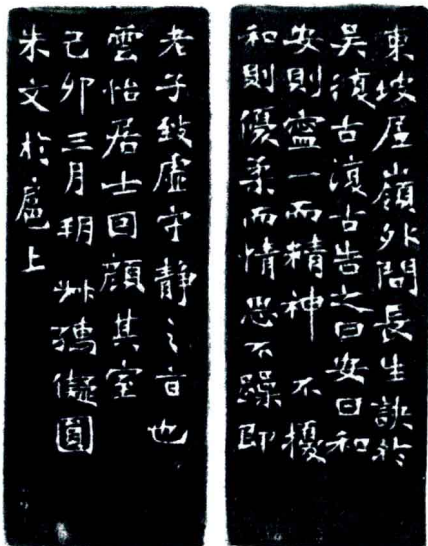 東坡居嶺外問長生訣於
吳復古復古告之曰安曰和
安則寧一而精神不擾
和則優柔而情思不躁即
老子致虛守靜之旨也
雲怡居士囙顏其室
己卯三月 艸 儗圓
朱文於扈上